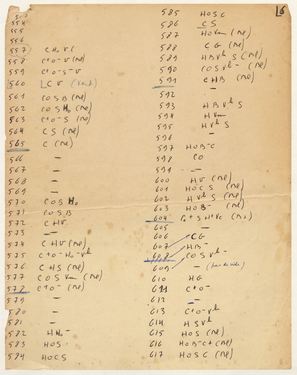 554
555
556
557 CHVL
558 C+O-V (Ne)
559 C+O-S-V
560 LCV
561 COSB (Ne)
562 COSHo (Ne)
563 C+O-S (Ne)
564 CS (Ne)
565 C (Ne)
566 —
567 —
568 —
569 —
570 COSHo
571 COSB
572 CHV
573 —
574 CHV (Ne)
575 C+O-Ho-Vl
576 CHS (Ne)
577 COSVm (Ne)
578 C+O- (Ne)
579 —
580 —
581 —
582 HHo-
583 HOS-
584 HOCS
585 HOSC
586 CS
587 HOVm (Ne)
588 CG (Ne)
589 HBVlS (Ne)
590 COSVl- (Ne)
591 CHB (Ne)
592 —
593 HBVl
594 HVm
595 HVlS
596 —
597 HOB-C
598 CO
599 —
600 HV (Ne)
601 HOCS (Ne)
602 HVlS (Ne)
603 HOB- (Ne)
604
605 —
606 CG
607 HB-
608 COSVl-
609 —
610 HG
611 C+O-
612 —
613 C+O-V
614 HSVl
615 HOS (Ne)
616 HOB-C+ (Ne)
617 HOSC (Ne)